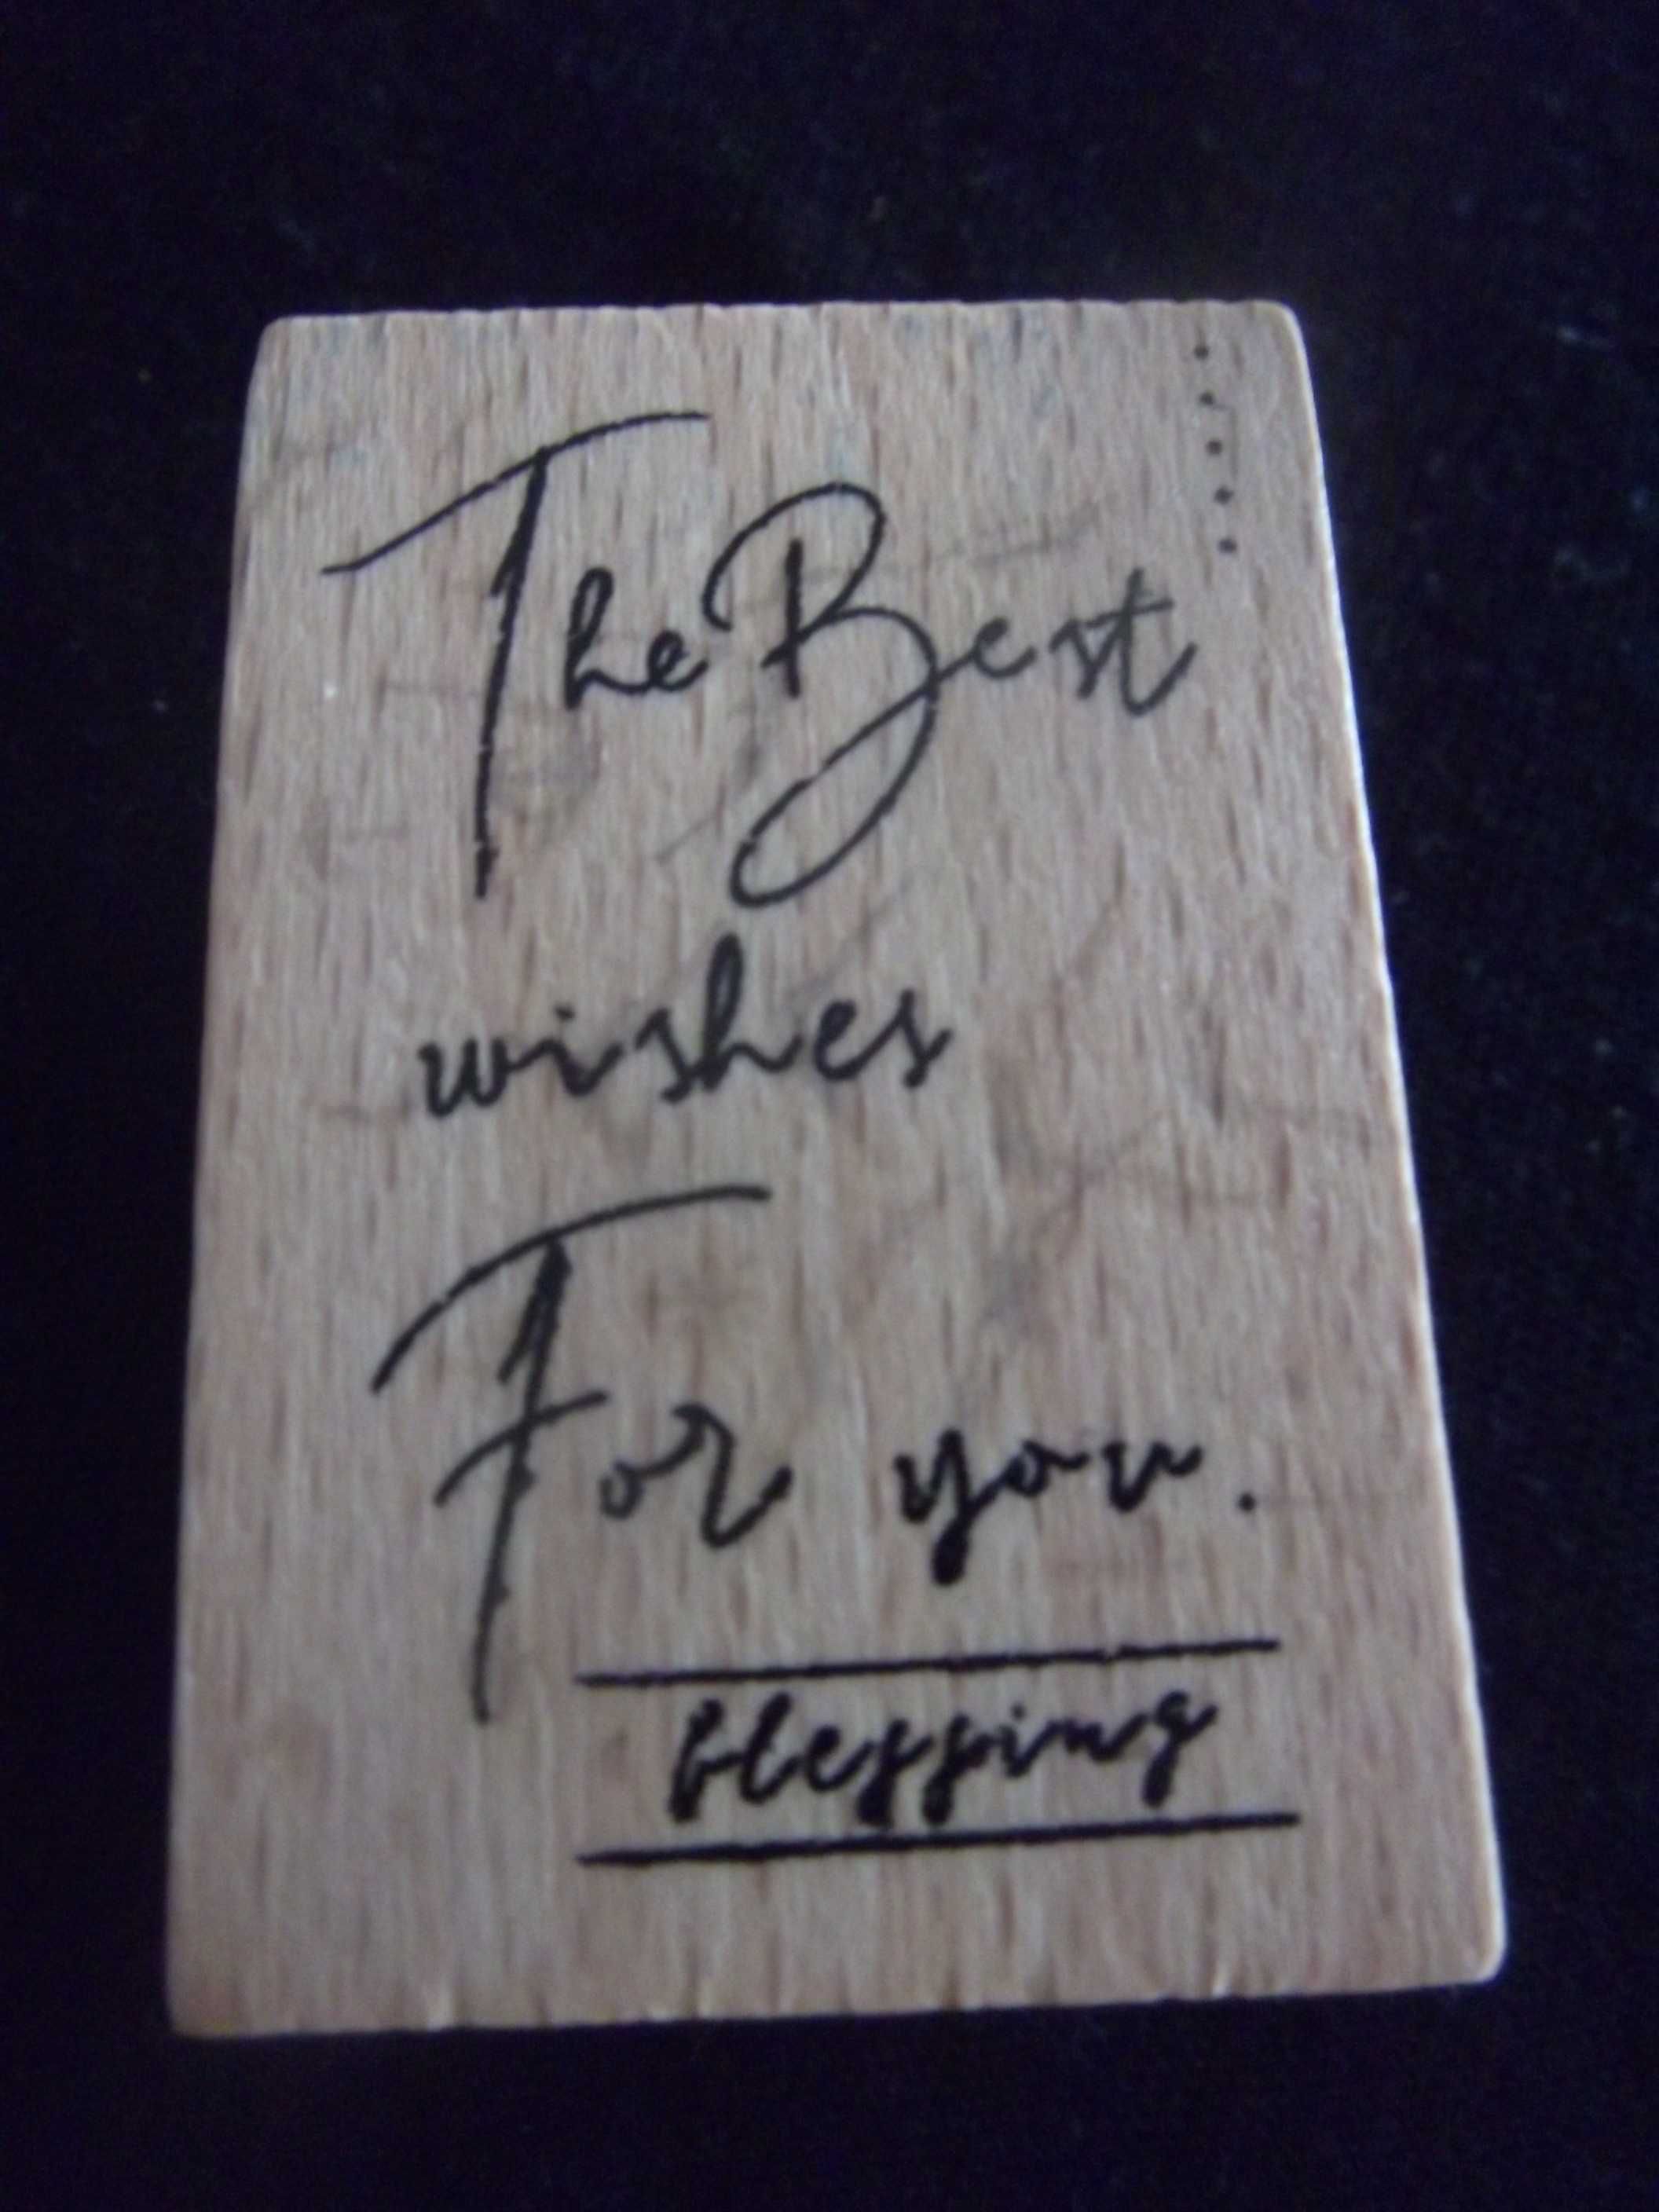 The Best
wishes
For you.
blessing